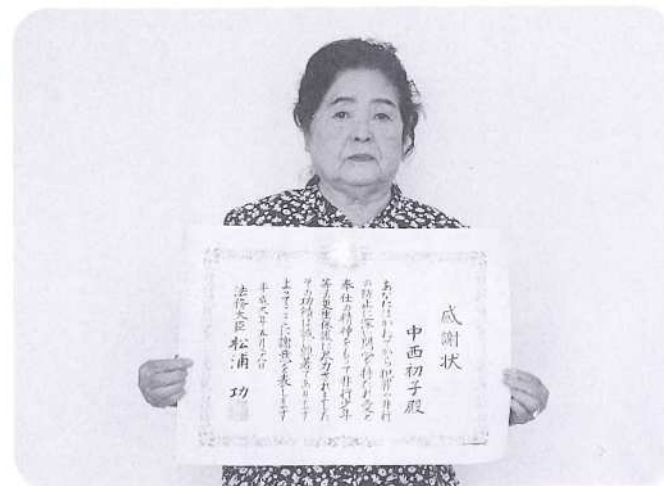 感謝状
中西初子殿
あなたはかねてから犯罪や非行
の防止に深い関心を持たれ愛と
奉仕の精神をもって非行少年
等の更生保護に尽力されました
その功績は誠に顕著であります
よってここに謝意を表します
平成九年五月六日
法務大臣 松浦功